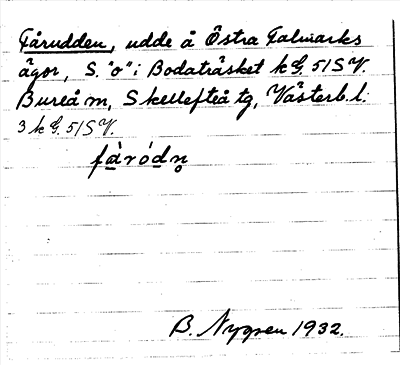 Fårudden, udde å Östra Falmarks
ägor, S. "o" i Bodaträsket k G. 51 S V.
Bureå m, Skellefteå tg, Västerb. l.
3 k G. 51 S V.
fàródn̥
B. Nygren 1932.